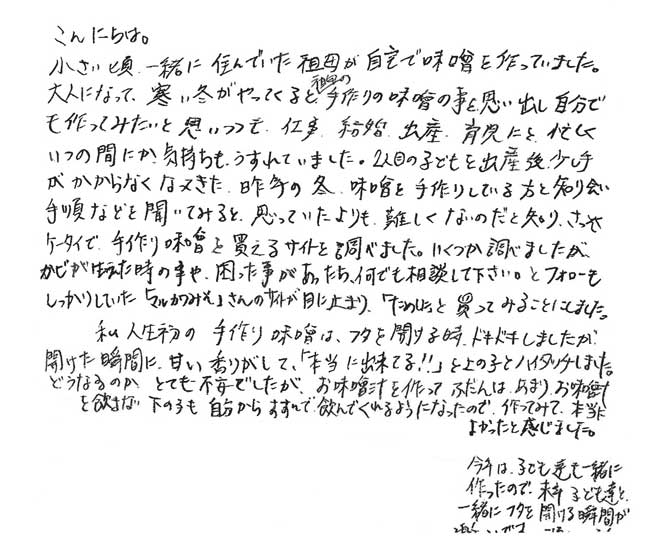 こんにちは。
小さい頃、一緒に住んでいた祖母が自宅で味噌を作っていました。
大人になって、寒い冬がやってくると祖母の手作りの味噌の事を思い出し自分で
も作ってみたいと思いつつも、仕事、結婚、出産、育児にと、忙しく
いつの間にか気持ちもうすれていました。2人目の子どもを出産後、少し手
がかからなくなってきた、昨年の冬、味噌を手作りしている方と知り合い
手順などを聞いてみると、思っていたよりも、難しくないのだと知り、さっそく
ケータイで、手作り味噌を買えるサイトを調べました。いくつか調べましたが、
カビが生えた時の事や、困った事があったら、何でも相談して下さい。とフォローも
しっかりしていた「マルカワみそ」さんのサイトが目に止まり、「ためしに」と買ってみることにしました。
私、人生初の手作り味噌は、フタを開ける時、ドキドキしましたが、
開けた瞬間に、甘い香りがして、「本当に出来てる!!」と上の子とハイタッチしました。
どうなるのか、とても不安でしたが、お味噌汁を作って、ふだんは、あまり、お味噌汁
を飲まない下の子も自分からすすんで飲んでくれるようになったので、作ってみて、本当に
よかったと感じました。
今年は、子ども達も一緒に
作ったので、来年子ども達と、
一緒にフタを開ける瞬間が